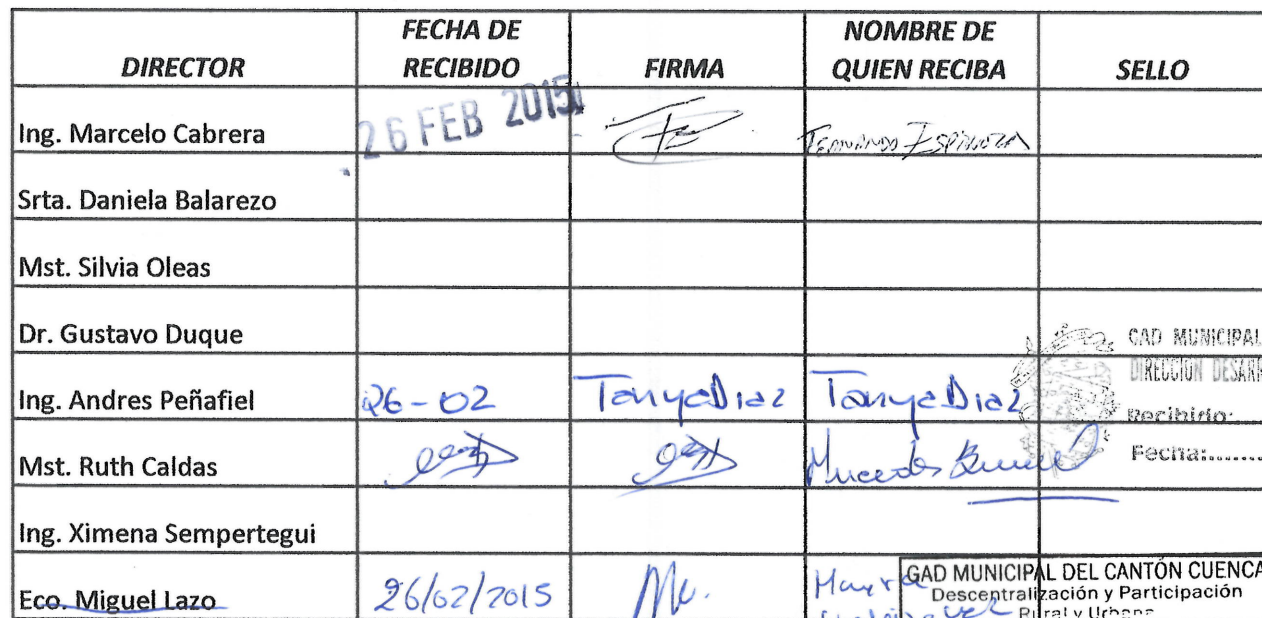 DIRECTOR FECHA DE RECIBIDO FIRMA NOMBRE DE QUIEN RECIBA SELLO
Ing. Marcelo Cabrera 26 FEB 2015 FERNANDO ESPINOZA
Srta. Daniela Balarezo
Mst. Silvia Oleas
Dr. Gustavo Duque
GAD MUNICIPAL
Ing. Andres Peñafiel 26-02 Tanya Diaz Tanya Diaz
Recibido:
Mst. Ruth Caldas
Fecha:........
Ing. Ximena Sempertegui
Eco. Miguel Lazo 26/02/2015
GAD MUNICIPAL DEL CANTÓN CUENCA
Descentralización y Participación
Rural y Urbana